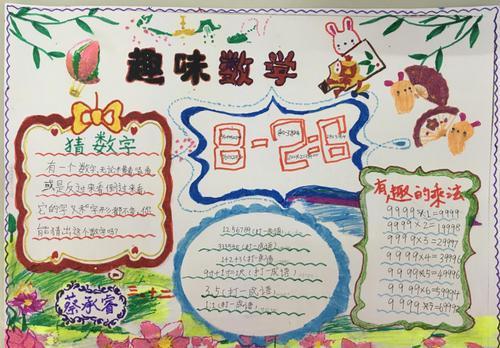 趣味数学
猜数字
有一个数字,无论
或是反过来看,倒过来看,
它的字义和字形都不变,你
能猜出这个数字吗?
蔡承睿
8-2=8
12567用(打一成语)
333555(打一成语)
1+2+3(打一成语)
(打一成语)
3.5(打一成语)
1:1(打一成语)
有趣的乘法
9999×1=9999
9999×2=19998
9999×3=29997
9999×4=39996
9999×5=49995
9999×6=59994
9999×7=69993